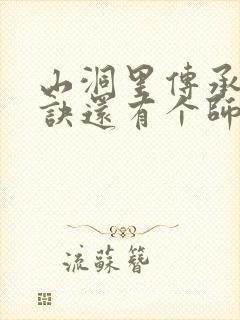 山洞里傳承
訣還有个師
流蘇簪